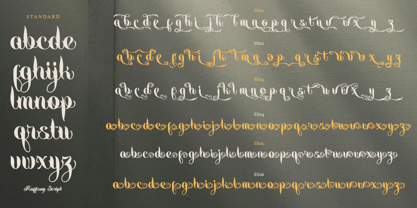 STANDARD
abcde
fghijk
lmnop
qrstu
vwxyz
SS01
abcdefghijklmnopqrstuvwxyz
SS02
abcdefghijklmnopqrstuvwxyz
SS03
abcdefghijklmnopqrstuvwxyz
SS04
abcdefghijklmnopqrstuvwxyz
SS05
abcdefghijklmnopqrstuvwxyz
SS06
abcdefghijklmnopqrstuvwxyz